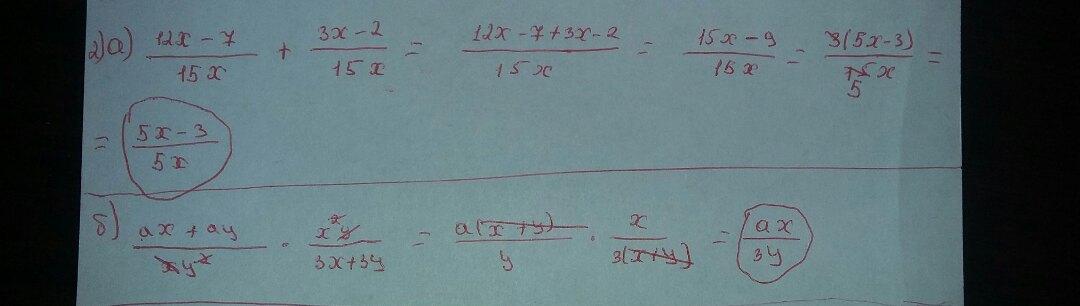 2) а) (12x - 7)/(15x) + (3x - 2)/(15x) = (12x - 7 + 3x - 2)/(15x) = (15x - 9)/(15x) = (3(5x - 3))/(15x) =
5
= (5x - 3)/(5x)
б) (ax + ay)/(xy²) · (x²y)/(3x + 3y) = (a(x + y))/y · x/(3(x + y)) = (ax)/(3y)